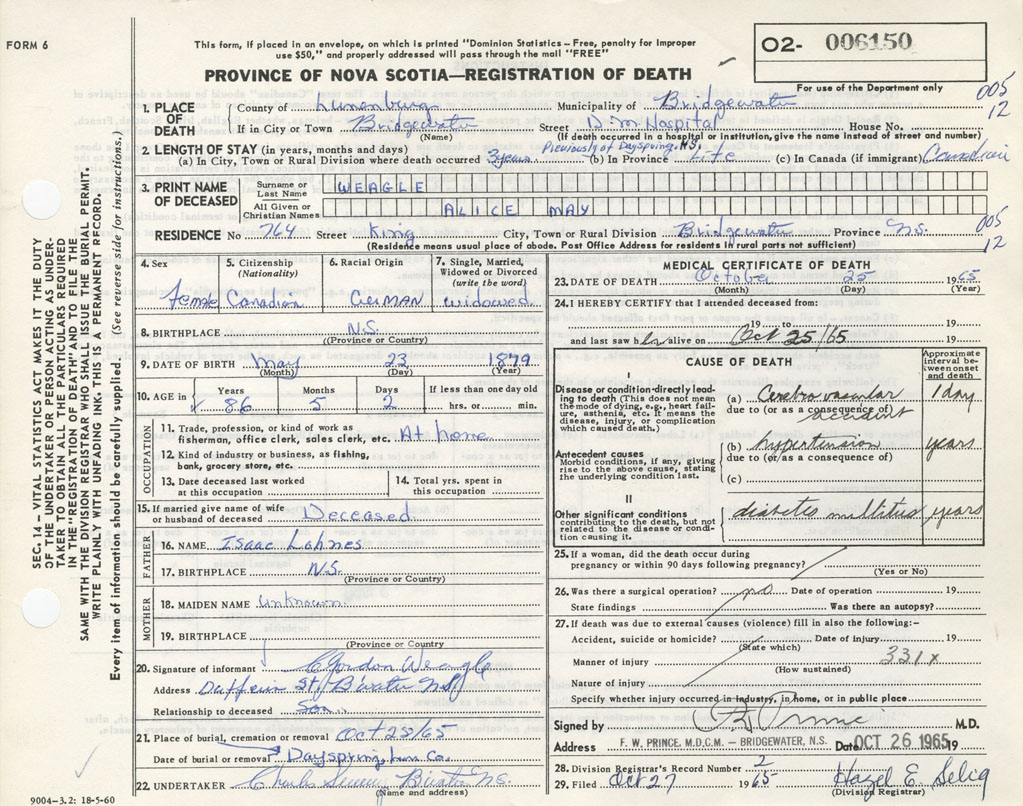 FORM 6
This form, if placed in an envelope, on which is printed "Dominion Statistics – Free, penalty for improper
use $50," and properly addressed will pass through the mail "FREE"
O2- 006150
For use of the Department only
PROVINCE OF NOVA SCOTIA—REGISTRATION OF DEATH
005
12
1. PLACE OF DEATH
County of Lunenburg Municipality of Bridgewater
If in City or Town Bridgewater (Name) Street D.M. Hospital House No.
(If death occurred in a hospital or institution, give the name instead of street and number)
2. LENGTH OF STAY (in years, months and days) Previously of Dayspring, N.S.
(a) In City, Town or Rural Division where death occurred 3 years (b) In Province Life (c) In Canada (if immigrant) Canadian
3. PRINT NAME OF DECEASED
Surname or Last Name WEAGLE
All Given or Christian Names ALICE MAY
RESIDENCE No 764 Street King City, Town or Rural Division Bridgewater Province N.S.
(Residence means usual place of abode. Post Office Address for residents in rural parts not sufficient)
005
12
4. Sex Female
5. Citizenship (Nationality) Canadian
6. Racial Origin GERMAN
7. Single, Married, Widowed or Divorced (write the word) widowed
8. BIRTHPLACE N.S.
(Province or Country)
9. DATE OF BIRTH May 23 1879
(Month) (Day) (Year)
10. AGE in Years 86 Months 5 Days 2 If less than one day old hrs. or min.
OCCUPATION
11. Trade, profession, or kind of work as
fisherman, office clerk, sales clerk, etc. At home
12. Kind of industry or business, as fishing,
bank, grocery store, etc.
13. Date deceased last worked at this occupation
14. Total yrs. spent in this occupation
15. If married give name of wife
or husband of deceased Deceased
FATHER
16. NAME Isaac Lohnes
17. BIRTHPLACE N.S.
(Province or Country)
MOTHER
18. MAIDEN NAME Unknown
19. BIRTHPLACE
(Province or Country
20. Signature of informant Gordon Weagle
Address Dufferin St, B'water N.S.
Relationship to deceased Son
21. Place of burial, cremation or removal Oct 28/65
Date of burial or removal Dayspring, Lun. Co.
22. UNDERTAKER Charles B'water N.S.
(Name and address)
MEDICAL CERTIFICATE OF DEATH
23. DATE OF DEATH October 25 1965
(Month) (Day) (Year)
24. I HEREBY CERTIFY that I attended deceased from:
19 to 19
and last saw h alive on Oct 25/65 19
CAUSE OF DEATH
Approximate interval between onset and death
I
Disease or condition directly leading to death (This does not mean the mode of dying, e.g., heart failure, asthenia, etc. It means the disease, injury, or complication which caused death.)
(a) Cerebro vascular accident 1 day
due to (or as a consequence of)
Antecedent causes
Morbid conditions, if any, giving rise to the above cause, stating the underlying condition last.
(b) hypertension years
due to (or as a consequence of)
(c)
II
Other significant conditions
contributing to the death, but not related to the disease or condition causing it.
diabetes mellitus years
25. If a woman, did the death occur during
pregnancy or within 90 days following pregnancy?
(Yes or No)
26. Was there a surgical operation? no Date of operation 19
State findings Was there an autopsy?
27. If death was due to external causes (violence) fill in also the following:–
Accident, suicide or homicide? Date of injury 19
(State which)
Manner of injury 331x
(How sustained)
Nature of injury
Specify whether injury occurred in industry, in home, or in public place
Signed by Prince M.D.
Address F. W. PRINCE, M.D.C.M. – BRIDGEWATER, N.S. Date OCT 26 1965 19
28. Division Registrar's Record Number 2
29. Filed Oct 27 1965 Hazel E. Selig
(Division Registrar)
9004–3.2: 18-5-60
SEC. 14 – VITAL STATISTICS ACT MAKES IT THE DUTY
OF THE UNDERTAKER OR PERSON ACTING AS UNDERTAKER
TO OBTAIN ALL THE PARTICULARS REQUIRED
IN THE "REGISTRATION OF DEATH" AND TO FILE THE
SAME WITH THE DIVISION REGISTRAR WHO SHALL ISSUE THE BURIAL PERMIT.
WRITE PLAINLY WITH UNFADING INK. THIS IS A PERMANENT RECORD.
Every item of information should be carefully supplied. (See reverse side for instructions.)